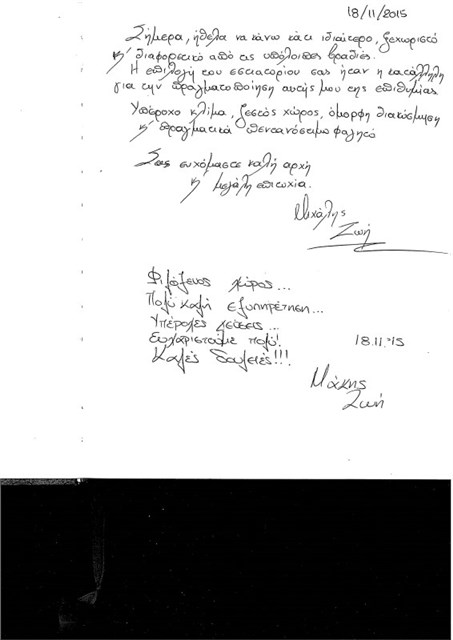 18/11/2015
Σήμερα, ήθελα να κάνω κάτι ιδιαίτερο, ξεχωριστό
κ' διαφορετικό από τις υπόλοιπες βραδιές.
Η επιλογή του εστιατορίου σας ήταν η κατάλληλη
για την πραγματοποίηση αυτής μου της επιθυμίας.
Υπέροχο κλίμα, ζεστός χώρος, όμορφη διακόσμηση
κ' πραγματικά πεντανόστιμο φαγητό
Σας ευχόμαστε καλή αρχή
κ' μεγάλη επιτυχία.
Μιχάλης
Ζωή
Φιλόξενος χώρος...
Πολύ καλή εξυπηρέτηση...
Υπέροχες γεύσεις...
Ευχαριστούμε πολύ! 18.11.'15
Καλές δουλειές!!!
Μάκης
Ζωή